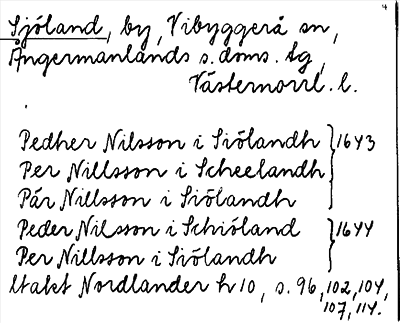 4
Sjöland, by, Vibyggerå sn,
Ångermanlands s. doms. tg,
Västernorrl. l.
Pedher Nilsson i Siölandh } 1643
Per Nillsson i Scheelandh
Pär Nillsson i Siölandh
Peder Nilsson i Schiöland } 1644
Per Nillsson i Siölandh
Utakt Nordlander h 10, s. 96, 102, 104,
107, 114.